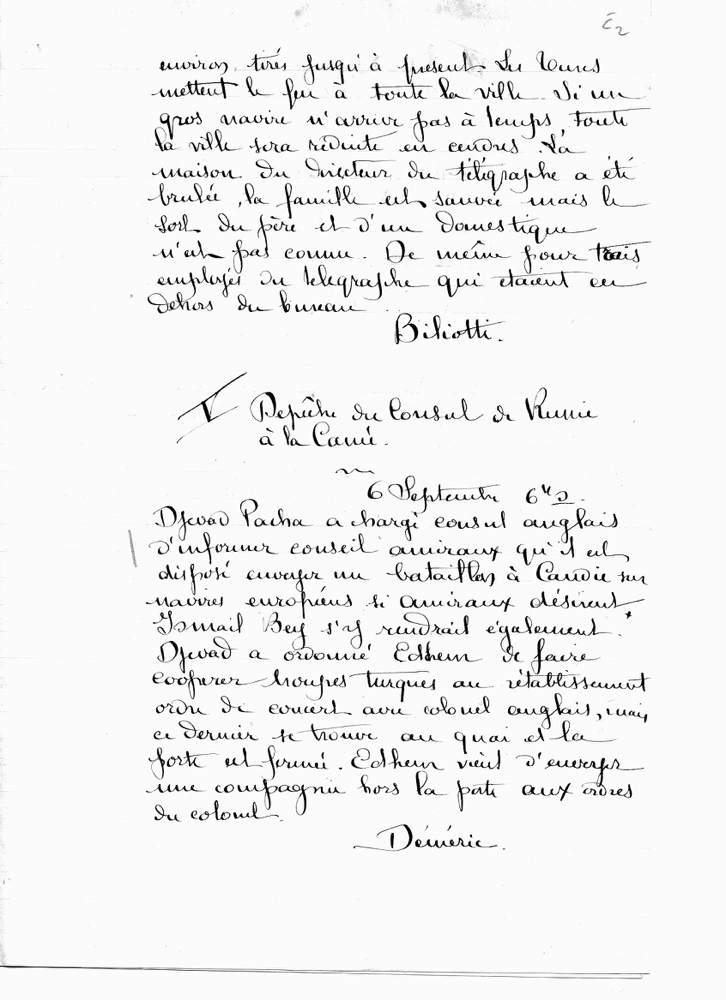 environ, tirés jusqu'à présent. Les Turcs
mettent le feu à toute la ville. Si un
gros navire n'arrive pas à temps, toute
la ville sera réduite en cendres. La
maison du directeur du télégraphe a été
brulée, la famille est sauvée mais le
sort du père et d'un domestique
n'est pas connu. De même pour trois
employés du telegraphe qui etaient en
dehors du bureau.
Biliotti.
V Depêche du Consul de Russie
à la Canée.
6 Septembre 6
Djevad Pacha a chargé consul anglais
d'informer conseil amiraux qu'il est
disposé envoyer un bataillon à Candie sur
navires européens si amiraux désirent
Ismail Bey s'y rendrait également.
Djevad a ordonné Edhem de faire
coopérer troupes turques au rétablissement
ordre de concert avec colonel anglais, mais
ce dernier se trouve au quai et la
porte est fermée. Edhem vient d'envoyer
une compagnie hors la porte aux ordres
du colonel.
Déméric.